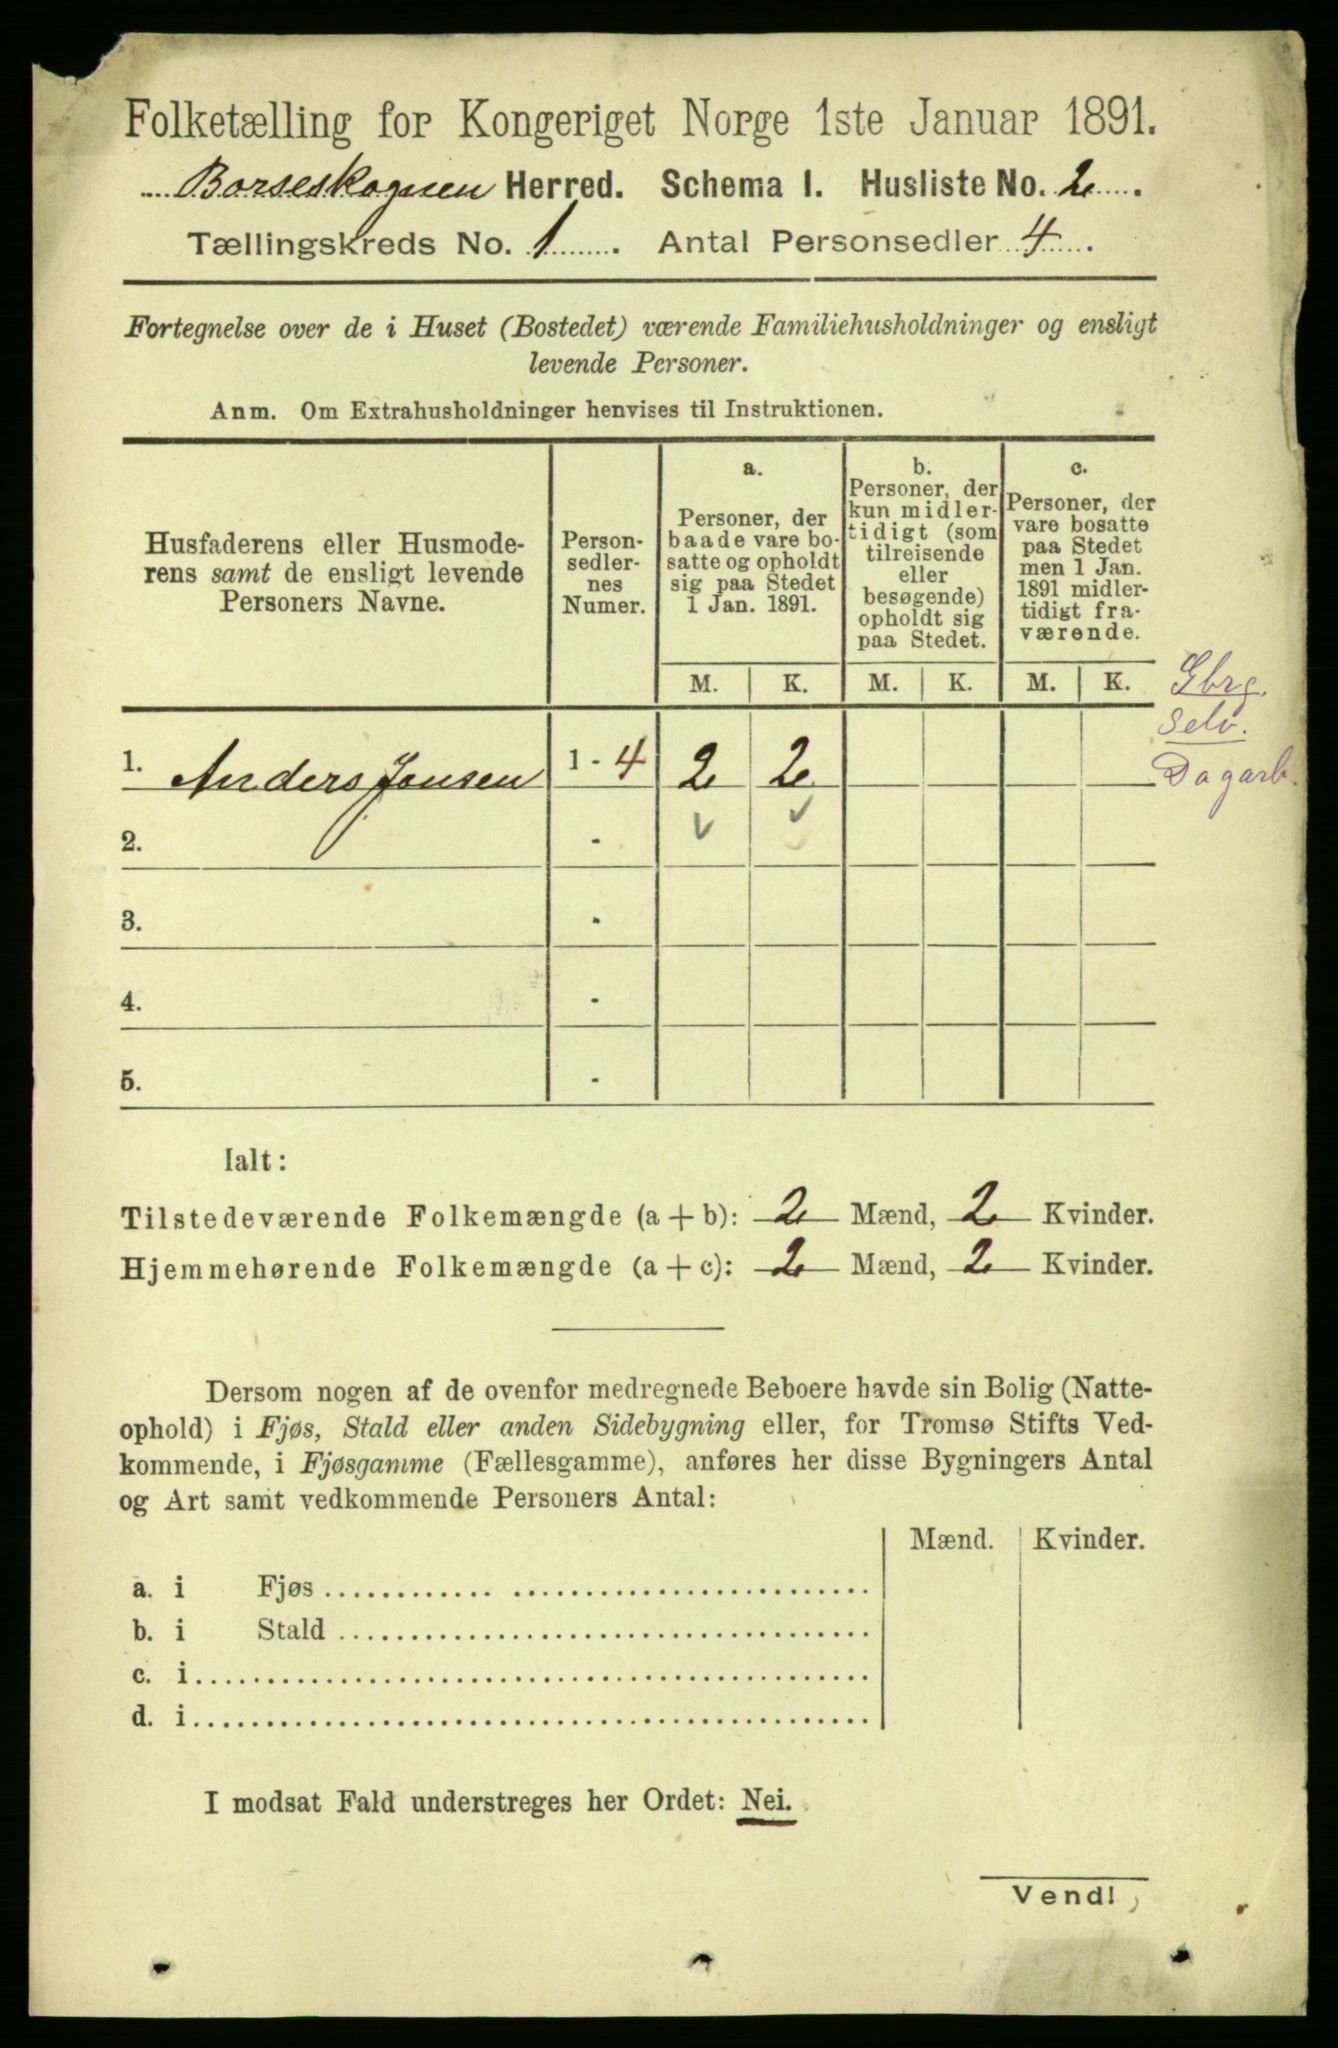 Folketælling for Kongeriget Norge 1ste Januar 1891.
Børseskognen Herred. Schema 1. Husliste No. 2.
Tællingskreds No. 1. Antal Personsedler 4.
Fortegnelse over de i Huset (Bostedet) værende Familiehusholdninger og ensligt
levende Personer.
Anm. Om Extrahusholdninger henvises til Instruktionen.
Husfaderens eller Husmode-
rens samt de ensligt levende
Personers Navne.
Person-
sedler-
nes
Numer.
a.
Personer, der
baade vare bo-
satte og opholdt
sig paa Stedet
1 Jan. 1891.
b.
Personer, der
kun midler-
tidigt (som
tilreisende
eller
besøgende)
opholdt sig
paa Stedet.
c.
Personer, der
vare bosatte
paa Stedet
men 1 Jan.
1891 midler-
tidigt fra-
værende.
M. K. M. K. M. K.
Gbrg.
Selv.
Dagarb.
1. Anders Jonsen 1 - 4 2 2
2. -
3. -
4. -
5. -
Ialt:
Tilstedeværende Folkemængde (a + b): 2 Mænd, 2 Kvinder.
Hjemmehørende Folkemængde (a + c): 2 Mænd, 2 Kvinder.
Dersom nogen af de ovenfor medregnede Beboere havde sin Bolig (Natte-
ophold) i Fjøs, Stald eller anden Sidebygning eller, for Tromsø Stifts Ved-
kommende, i Fjøsgamme (Fællesgamme), anføres her disse Bygningers Antal
og Art samt vedkommende Personers Antal:
Mænd. Kvinder.
a. i Fjøs
b. i Stald
c. i
d. i
I modsat Fald understreges her Ordet: Nei.
Vend!